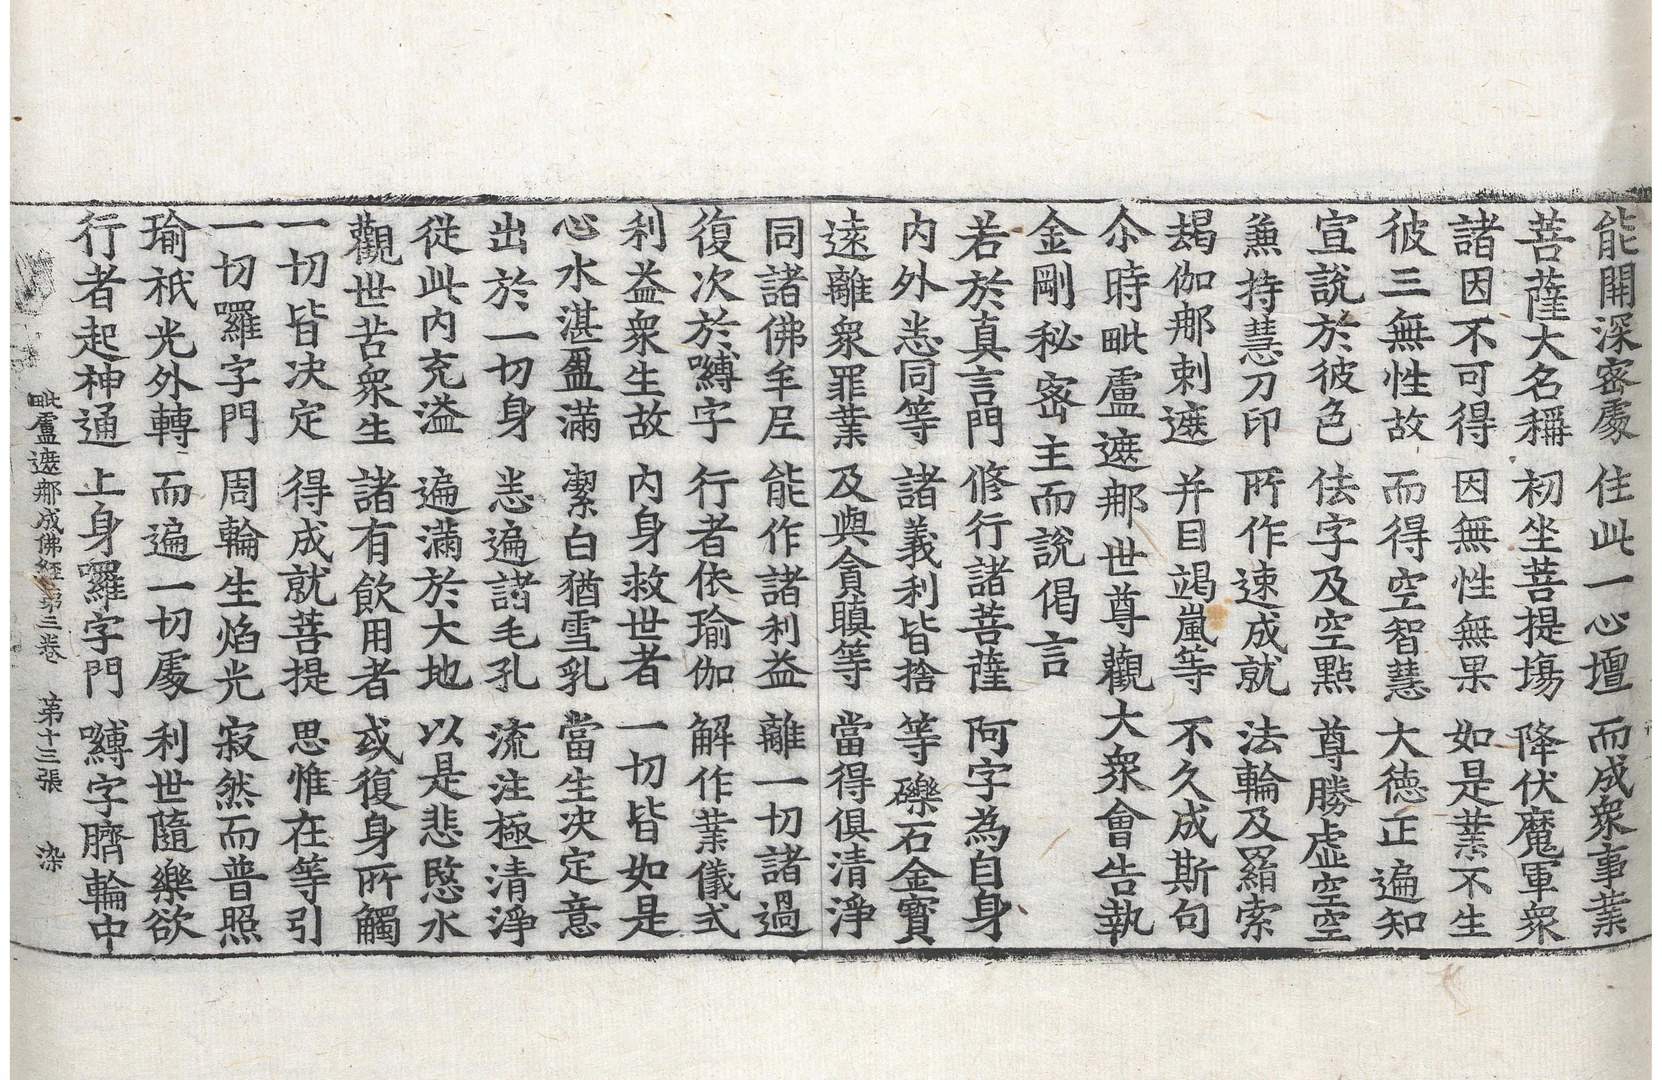 能開深密處　住此一心壇　而成衆事業
菩薩大名稱　初坐菩提場　降伏魔軍衆
諸因不可得　因無性無果　如是業不生
彼三無性故　而得空智慧　大德正遍知
宣說於彼色　佉字及空點　尊勝虛空空
兼持慧刀印　所作速成就　法輪及羂索
朅伽那刺遮　幷目竭嵐等　不久成斯句
尒時毗盧遮那世尊觀大衆會告執
金剛秘密主而說偈言
若於真言門　修行諸菩薩　阿字為自身
内外悉同等　諸義利皆捨　等礫石金寶
遠離衆罪業　及與貪瞋等　當得俱清淨
同諸佛牟尼　能作諸利益　離一切諸過
復次於嚩字　行者依瑜伽　解作業儀式
利益衆生故　内身救世者　一切皆如是
心水湛盈滿　潔白猶雪乳　當生決定意
出於一切身　悉遍諸毛孔　流注極清淨
從此内充溢　遍滿於大地　以是悲愍水
觀世苦衆生　諸有飲用者　或復身所觸
一切皆決定　得成就菩提　思惟在等引
一切囉字門　周輪生焰光　寂然而普照
瑜祇光外轉　而遍一切處　利世隨樂欲
行者起神通　上身囉字門　嚩字臍輪中
毗盧遮那成佛經第三卷　第十三張　染